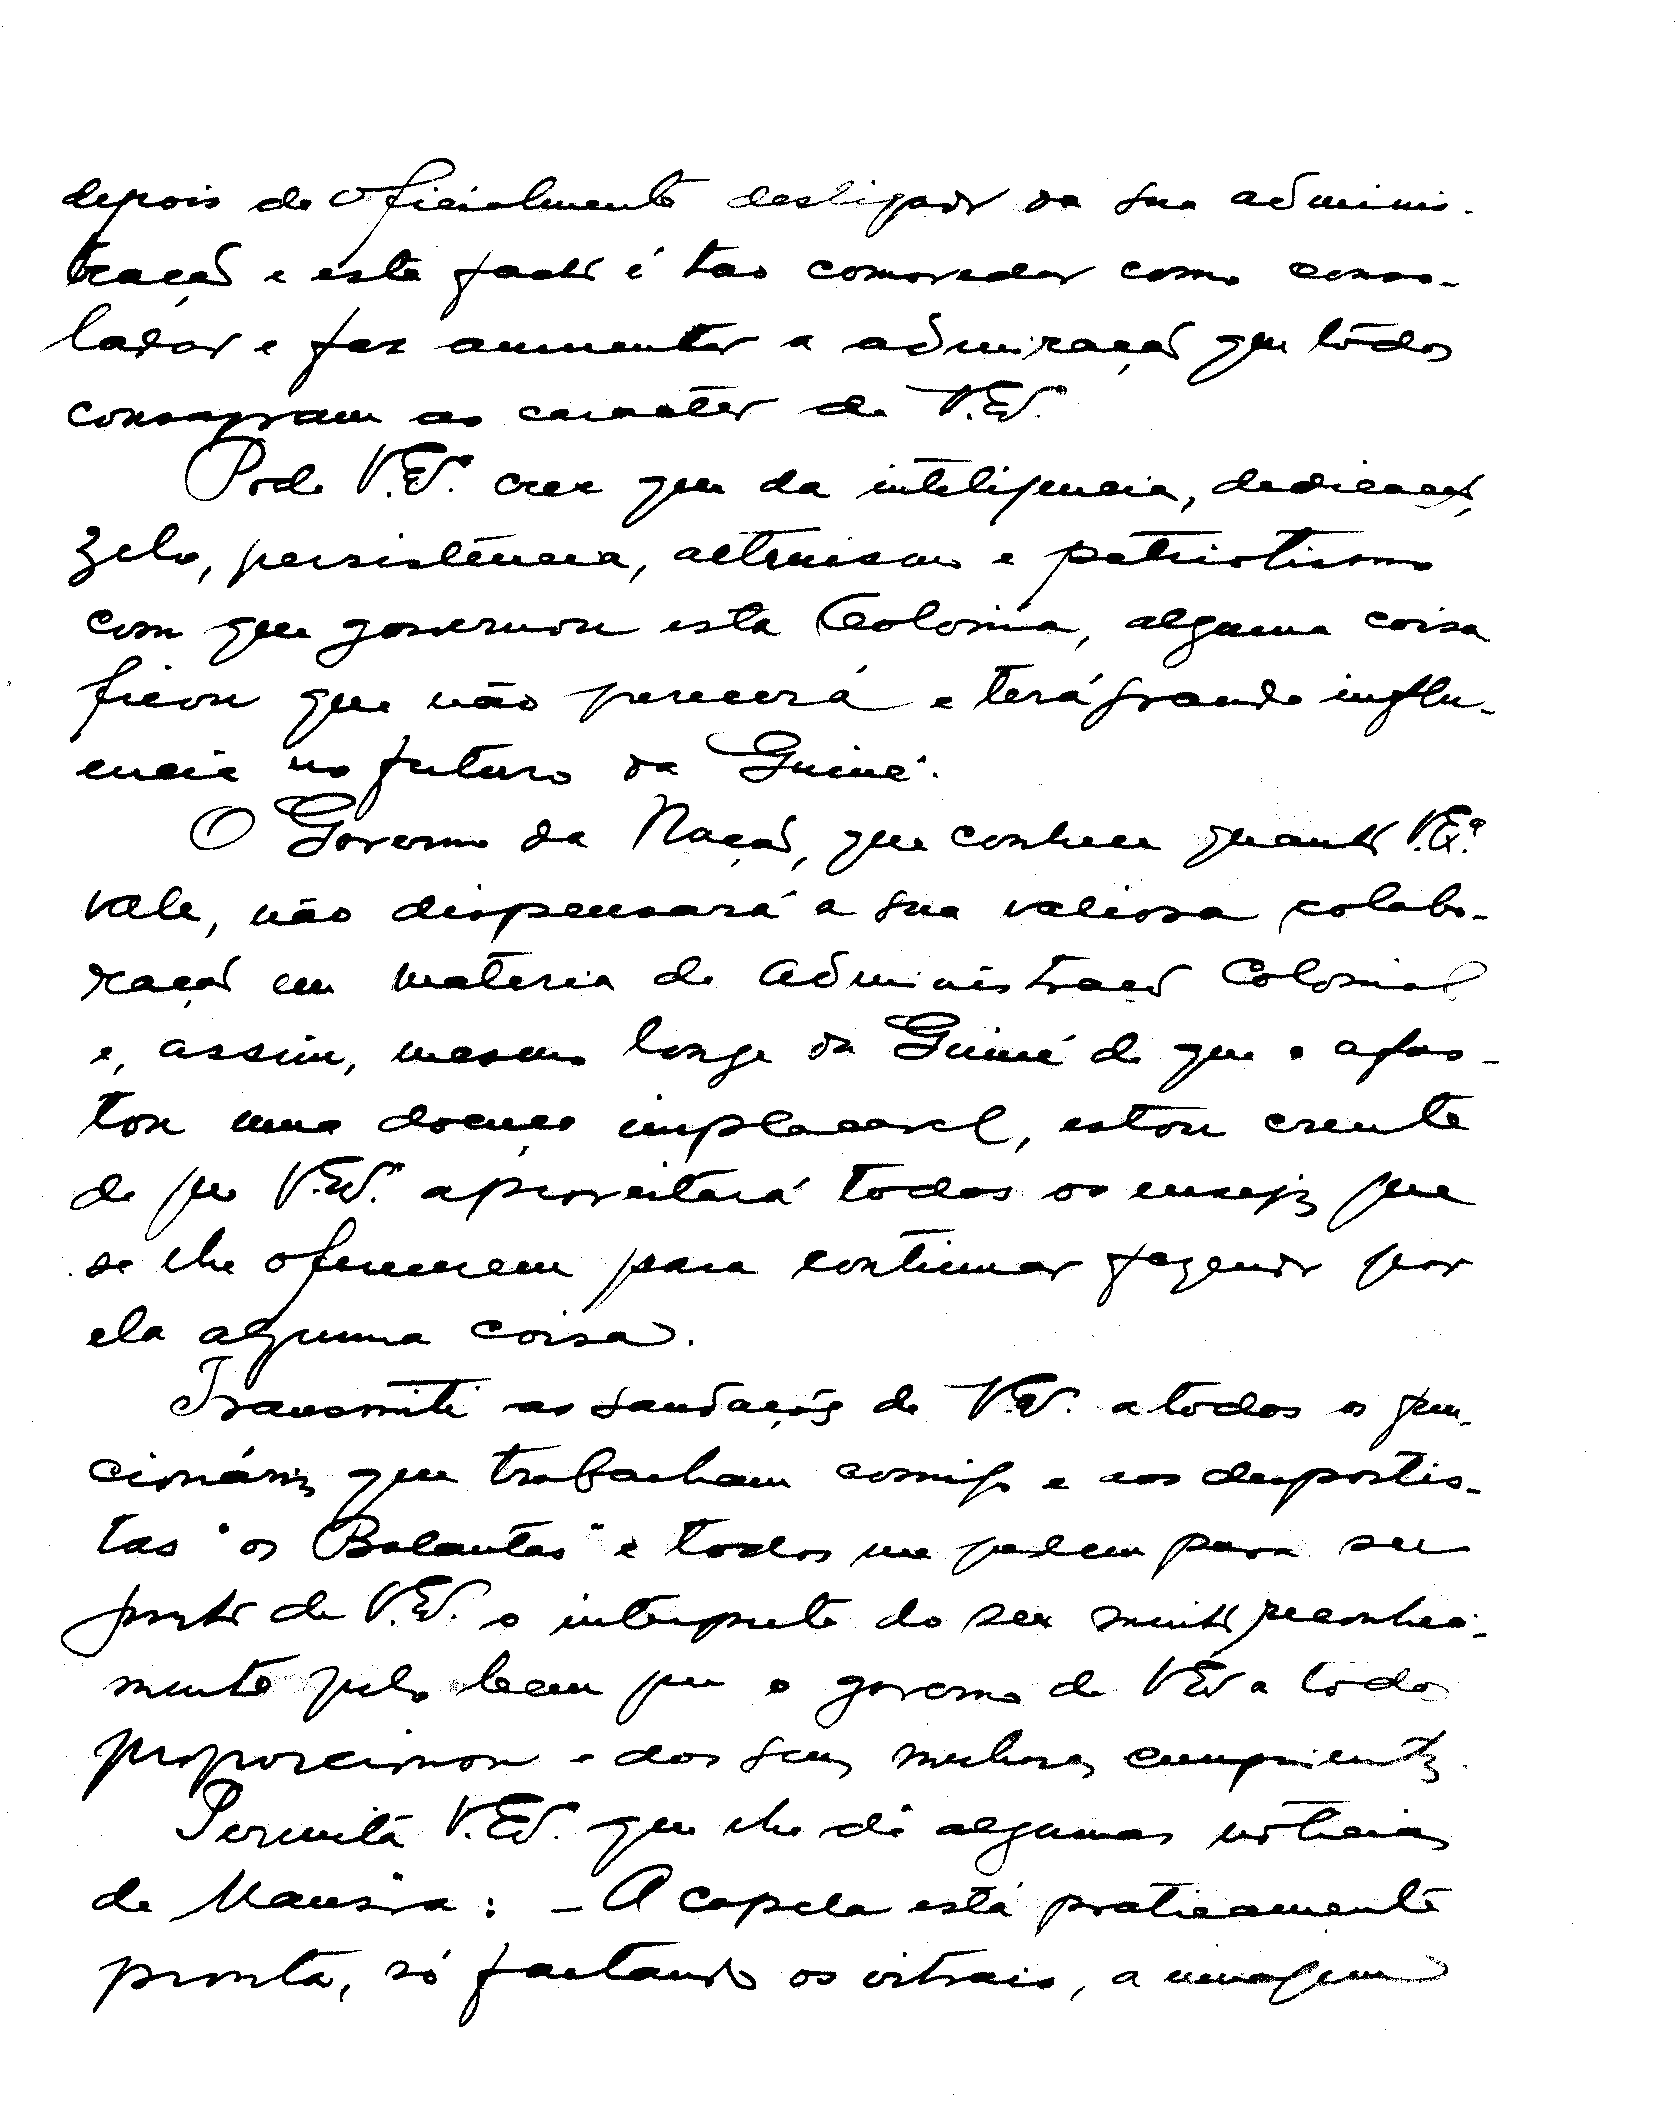 depois de oficialmente desligado da sua adminis-
tração e este facto é tão comovedor como conso-
lador e faz aumentar a admiração que todos
consagram ao caracter de V. Exª.
Pode V. Exª. crer que da inteligencia, dedicação,
zelo, persistência, altruismo e patriotismo
com que governou esta Colonia, alguma coisa
ficou que não perecerá e terá grande influ-
encia no futuro da Guiné.
O Governo da Nação, que conhece quanto V. Exª.
vale, não dispensará a sua valiosa colabo-
ração em materia de administração Colonial
e, assim, mesmo longe da Guiné de que o afas-
tou uma doença implacavel, estou crente
de que V. Exª. aproveitará todos os ensejos que
se lhe oferecerem para continuar fazendo por
ela alguma coisa.
Transmiti as saudações de V. Exª. a todos os fun-
cionários que trabalham comigo e aos desportis-
tas "os Balantas" e todos me pedem para ser
junto de V. Exª. o interprete do seu muito reconheci-
mento pelo bem que o governo de V. Exª a todos
proporcionou e dos seus melhores cumprimentos.
Permita V. Exª. que lhe dê algumas noticias
de Mansôa: - A capela está praticamente
pronta, só faltando os vitrais, a imagem